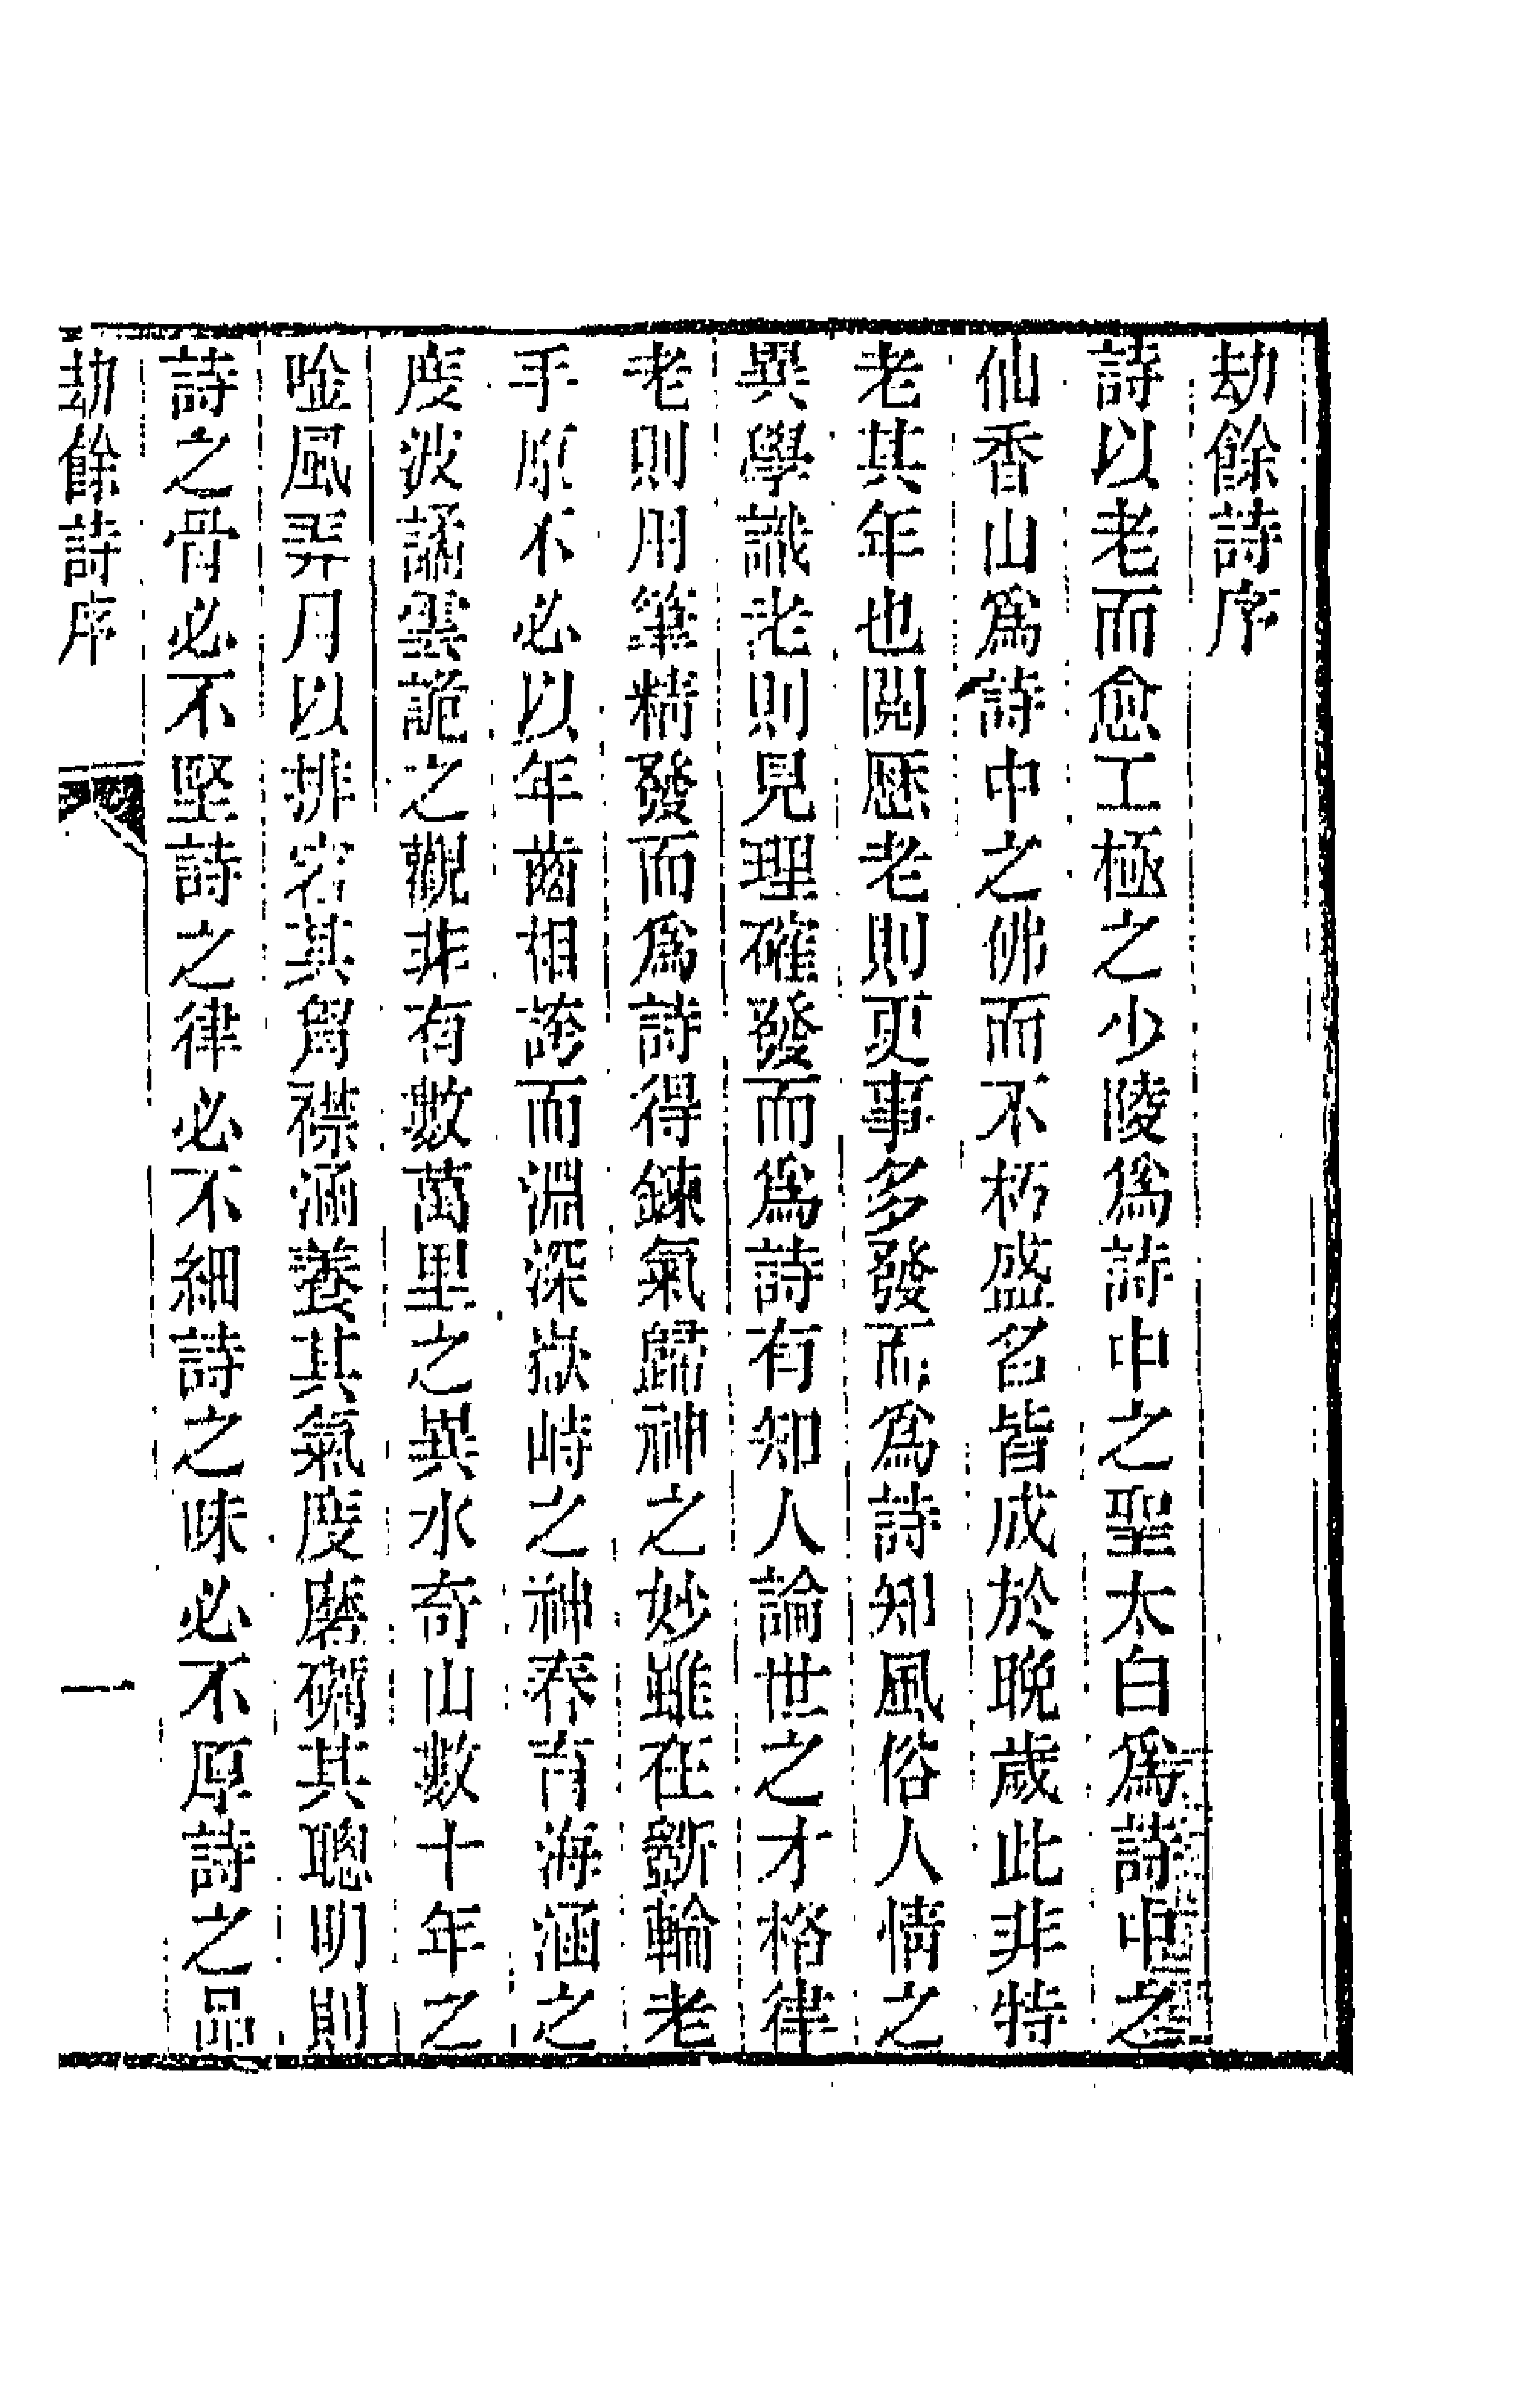 劫餘詩序
詩以老而愈工極之少陵爲詩中之聖太白爲詩中之
仙香山爲詩中之佛而不朽盛名皆成於晚歲此非特
老其年也閱歷老則更事多發而爲詩知風俗人情之
異學識老則見理確發而爲詩有知人論世之才格律
老則用筆精發而爲詩得鍊氣歸神之妙雖在斵輪老
手原不必以年齒相誇而淵深嶽峙之神春育海涵之
度波譎雲詭之觀非有數萬里之異水奇山數十年之
唫風弄月以排宕其胷襟涵養其氣度磨礪其聰明則
詩之骨必不堅詩之律必不細詩之味必不厚詩之品
劫餘詩序
一